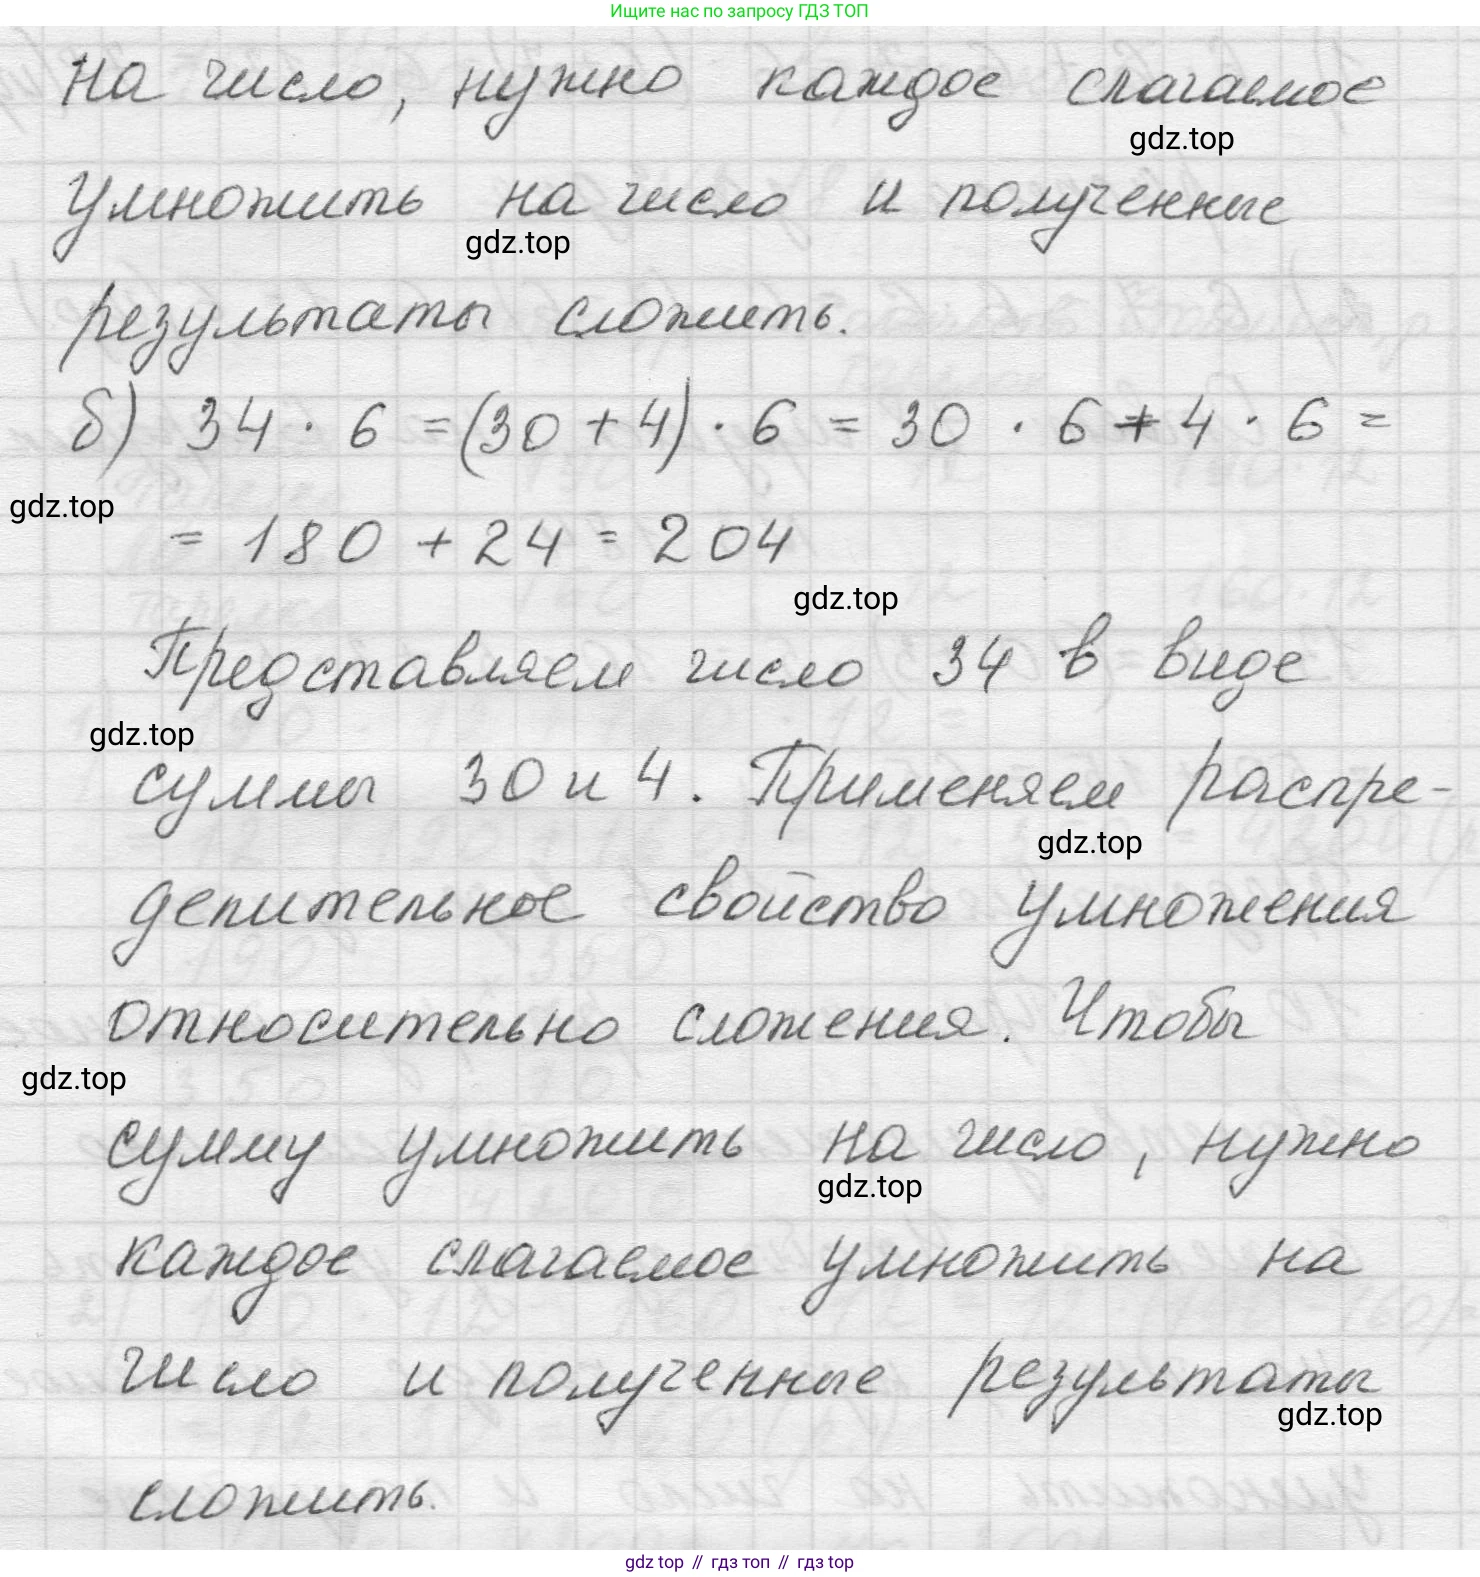 Ищите нас по запросу ГДЗ ТОП
на число, нужно каждое слагаемое
gdz.top
умножить на число и полученные
gdz.top
результаты сложить.
б) 34 · 6 = (30 + 4) · 6 = 30 · 6 + 4 · 6 =
gdz.top
= 180 + 24 = 204
gdz.top
Представляем число 34 в виде
gdz.top
суммы 30 и 4. Применяем распре-
gdz.top
делительное свойство умножения
относительно сложения. Чтобы
gdz.top
сумму умножить на число, нужно
gdz.top
каждое слагаемое умножить на
число и полученные результаты
gdz.top
сложить.
gdz top // гдз топ // гдз top